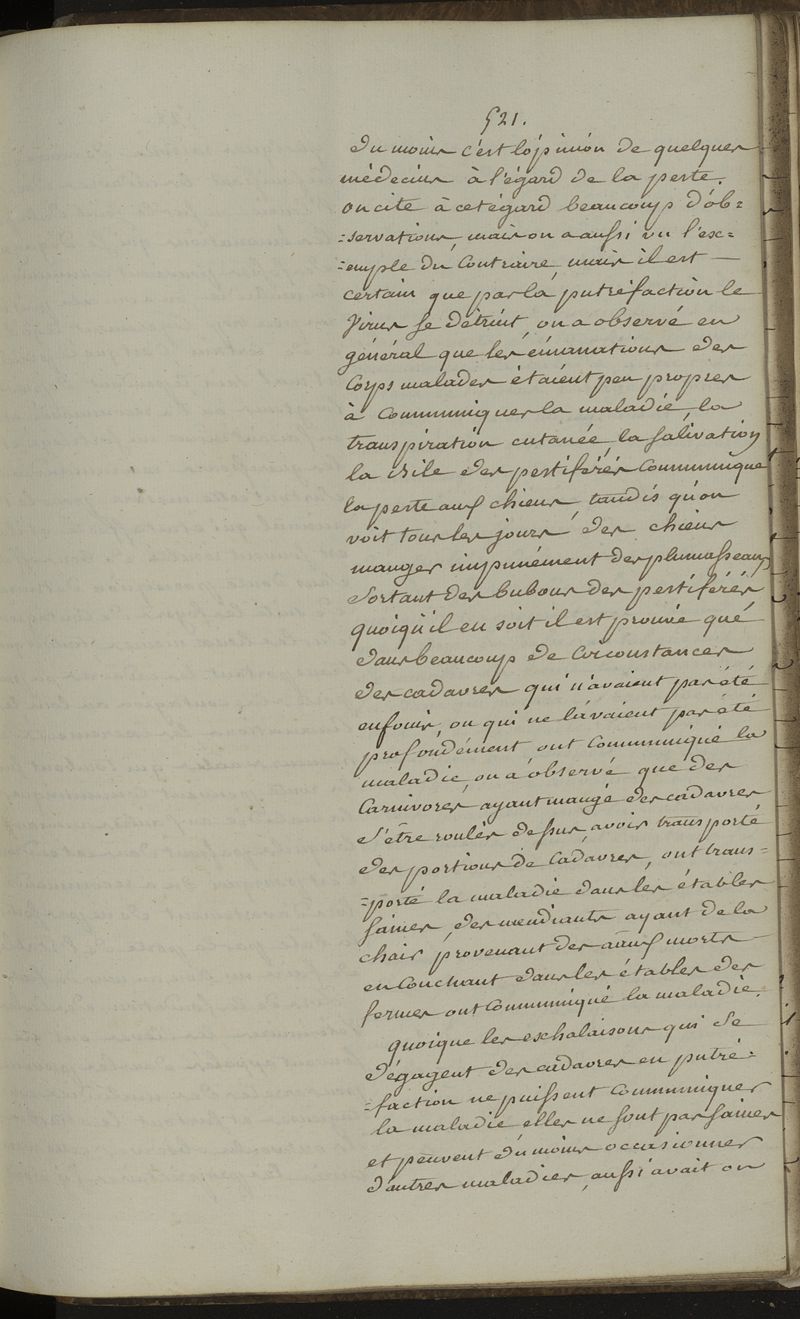 521.
du moins c'est l'opinion de quelques
médecins à l'égard de la peste.
on cite à cet égard beaucoup d'ob=
=servations, mais on a aussi vu l'ex=
=emple du Contraire, mais il est —
certain que par la putréfaction le
Virus se détruit, on a observé en
général que les émanations des
Corps malades étaient peu propres
à Communiquer la maladie, la
transpiration cutanée, la salivation
la bile des pestiférés Communique
la peste aux chiens, tandis qu'on
voit tous les jours des chiens
manger impunément des plumasseaux
sortant des bubons des pestiférés
quoiqu'il en soit il est prouvé que
dans beaucoup de Circonstances
des cadavres qui n'avaient pas été
enfouis, ou qui ne l'avaient pas été
profondément ont Communiqué la
maladie, on a observé que des
Carnivores ayant mangé des cadavres
s'être roulés dessus, avoir transporté
des portions de Cadavres, ont trans=
=porté la maladie dans les étables
saines, des mendiants ayant de la
chair provenant des anx morts —
en Couchant dans les étables des
fermes ont Communiqué la maladie.
quoique les exhalaisons qui se
dégagent des cadavres en putré=
=faction ne puissent Communiquer
la maladie elles ne sont pas saines
et peuvent du moins occasionner
d'autres maladies, aussi avait on